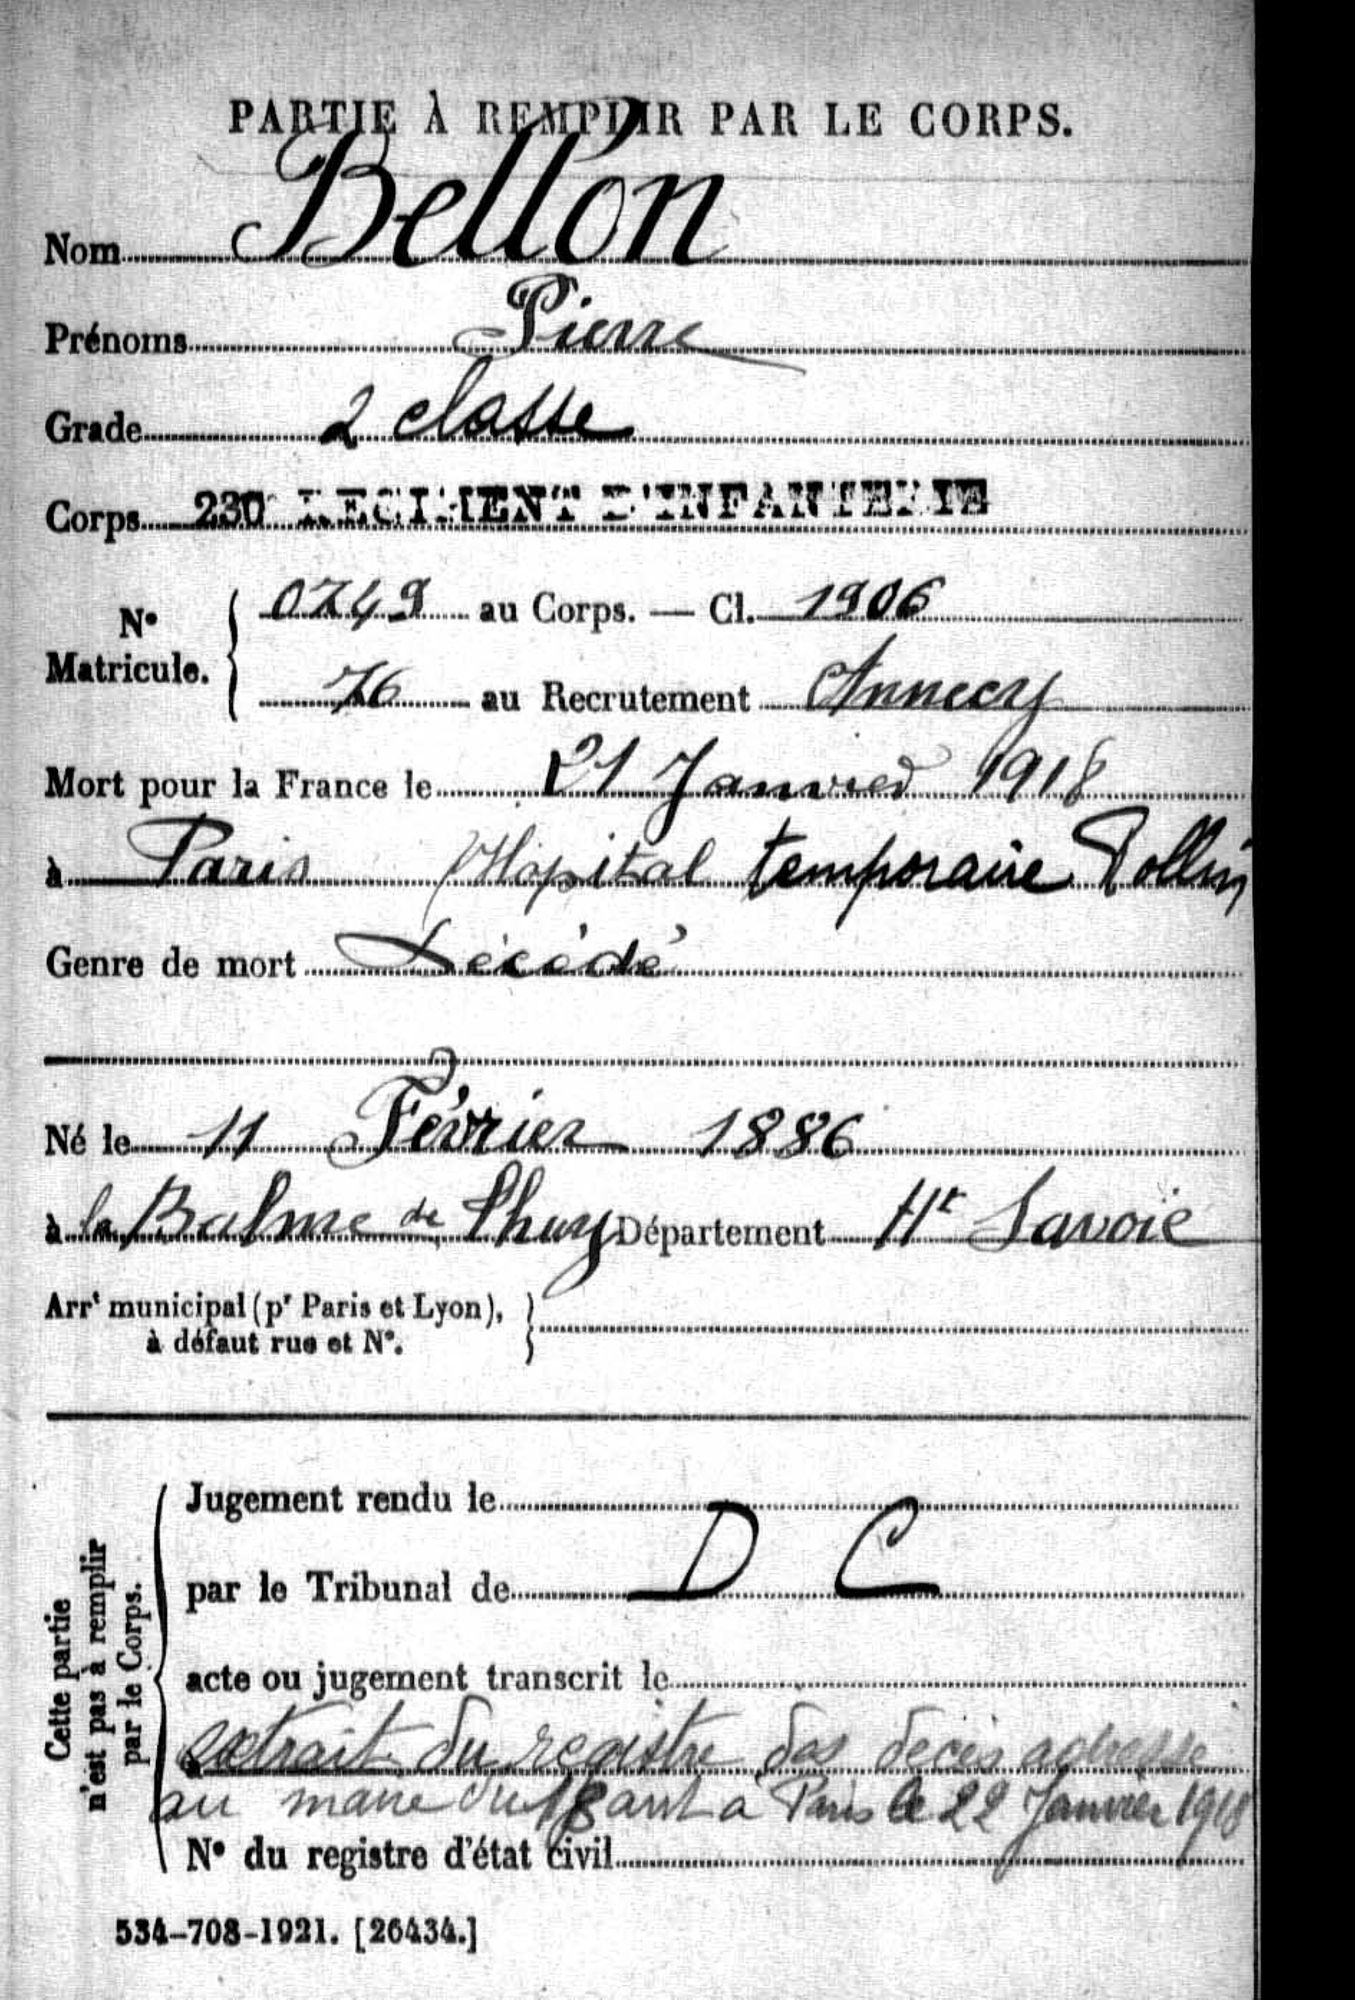 PARTIE À REMPLIR PAR LE CORPS.
Nom Bellon
Prénoms Pierre
Grade 2 classe
Corps 230 REGIMENT D'INFANTERIE
N° Matricule.
0749 au Corps. — Cl. 1906
76 au Recrutement Annecy
Mort pour la France le 21 Janvier 1918
à Paris Hôpital temporaire Rollin
Genre de mort Décédé
Né le 11 Février 1886
à la Balme de Thuy Département Hte Savoie
Arrt municipal (pr Paris et Lyon),
à défaut rue et N°.
Cette partie
n'est pas à remplir
par le Corps.
Jugement rendu le
par le Tribunal de D C
acte ou jugement transcrit le
à extrait du registre des décès adressé
au maire du 18 arrt à Paris le 22 Janvier 1918
N° du registre d'état civil
534-708-1921. [26434.]